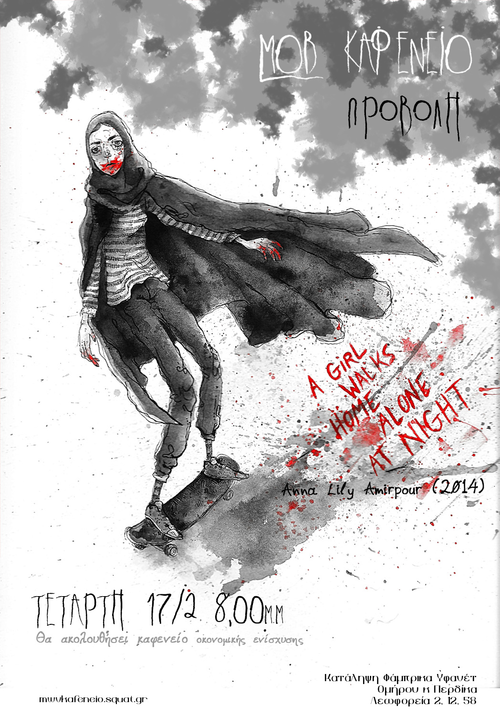 ΜΩΒ ΚΑΦΕΝΕΙΟ
ΠΡΟΒΟΛΗ
A GIRL
WALKS
HOME
ALONE
AT NIGHT
Anna Lily Amirpour (2014)
ΤΕΤΑΡΤΗ 17/2 8,00ΜΜ
Θα ακολουθήσει καφενείο οικονομικής ενίσχυσης
Κατάληψη Φάμπρικα Υφανέτ
Ομήρου κ Περδίκα
Λεωφορεία 2, 12, 58
mwvkafeneio.squat.gr